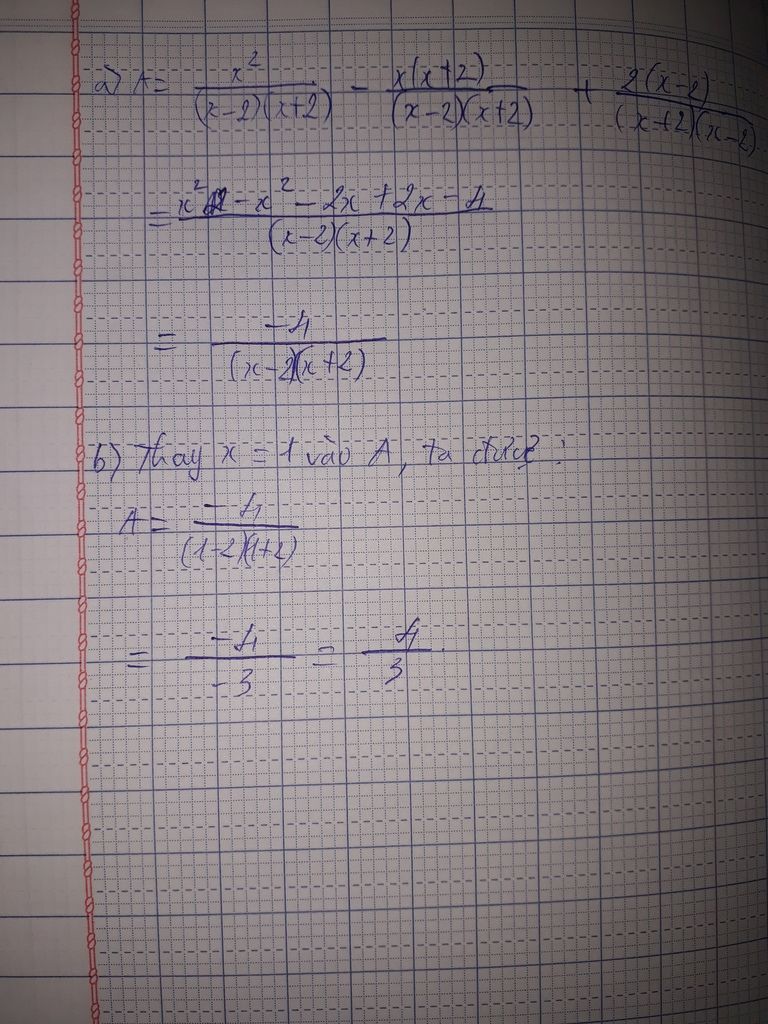 a) A = x²/((x-2)(x+2)) - x(x+2)/((x-2)(x+2)) + 2(x-2)/((x+2)(x-2))
= (x² - x² - 2x + 2x - 4)/((x-2)(x+2))
= -4/((x-2)(x+2))
b) Thay x = 1 vào A, ta được:
A = -4/((1-2)(1+2))
= -4/-3 = 4/3.